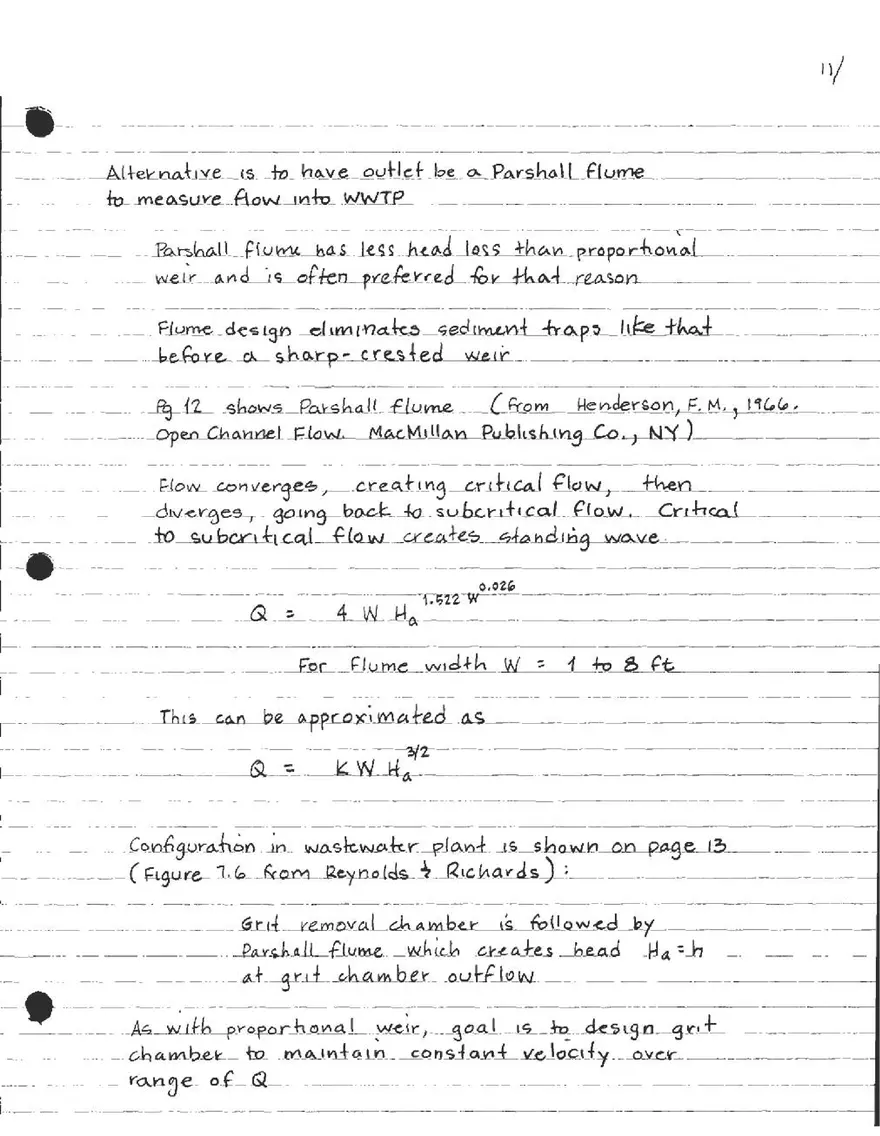 11/
Alternative is to have outlet be a Parshall flume
to measure flow into WWTP
Parshall flume has less head loss than proportional
weir and is often preferred for that reason
Flume design eliminates sediment traps like that
before a sharp-crested weir
Pg 12 shows Parshall flume (from Henderson, F. M., 1966.
Open Channel Flow. MacMillan Publishing Co., NY)
Flow converges, creating critical flow, then
diverges, going back to subcritical flow. Critical
to subcritical flow creates standing wave
Q = 4 W Ha^1.522 W^0.026
For flume width W = 1 to 8 ft
This can be approximated as
Q = K W Ha^3/2
Configuration in wastewater plant is shown on page 13
(Figure 7.6 from Reynolds & Richards):
Grit removal chamber is followed by
Parshall flume which creates head Ha = h
at grit chamber outflow
As with proportional weir, goal is to design grit
chamber to maintain constant velocity over
range of Q